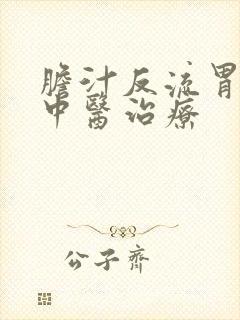 膽汁反流胃
中醫治療
公子齊